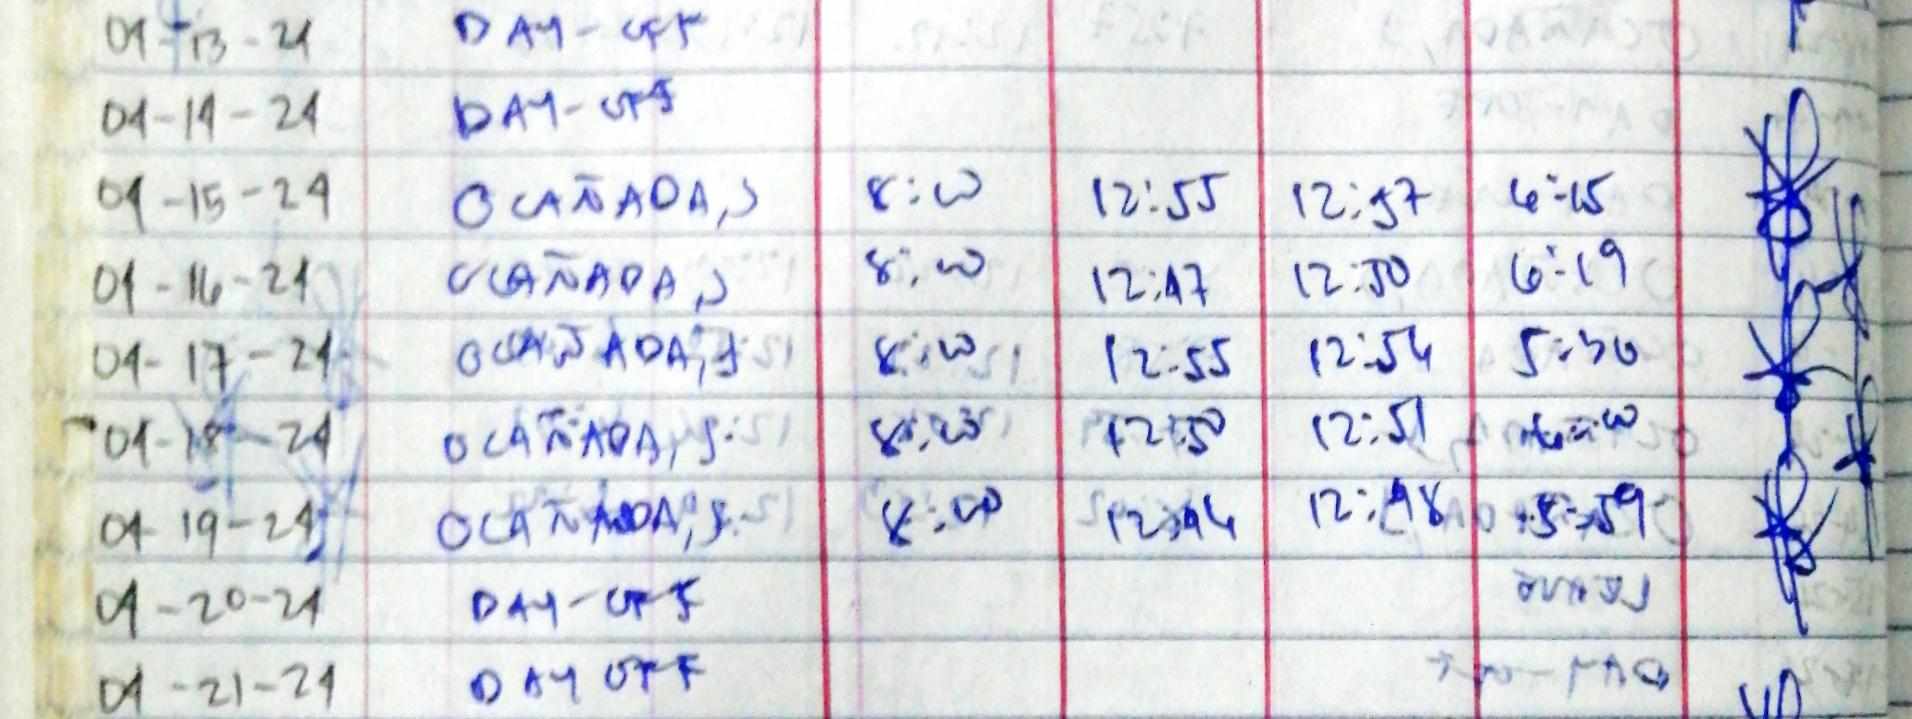 04-13-24 DAY-OFF
04-14-24 DAY-OFF
04-15-24 OCAÑADA, J 8:00 12:55 12:57 6:15
04-16-24 OCAÑADA, J 8:00 12:47 12:50 6:19
04-17-24 OCAÑADA, J 8:00 12:55 12:56 5:30
04-18-24 OCAÑADA, J. 8:00 12:50 12:51 6:00
04-19-24 OCAÑADA, J. 8:00 12:46 12:48 5:59
04-20-24 DAY-OFF
04-21-24 DAY OFF